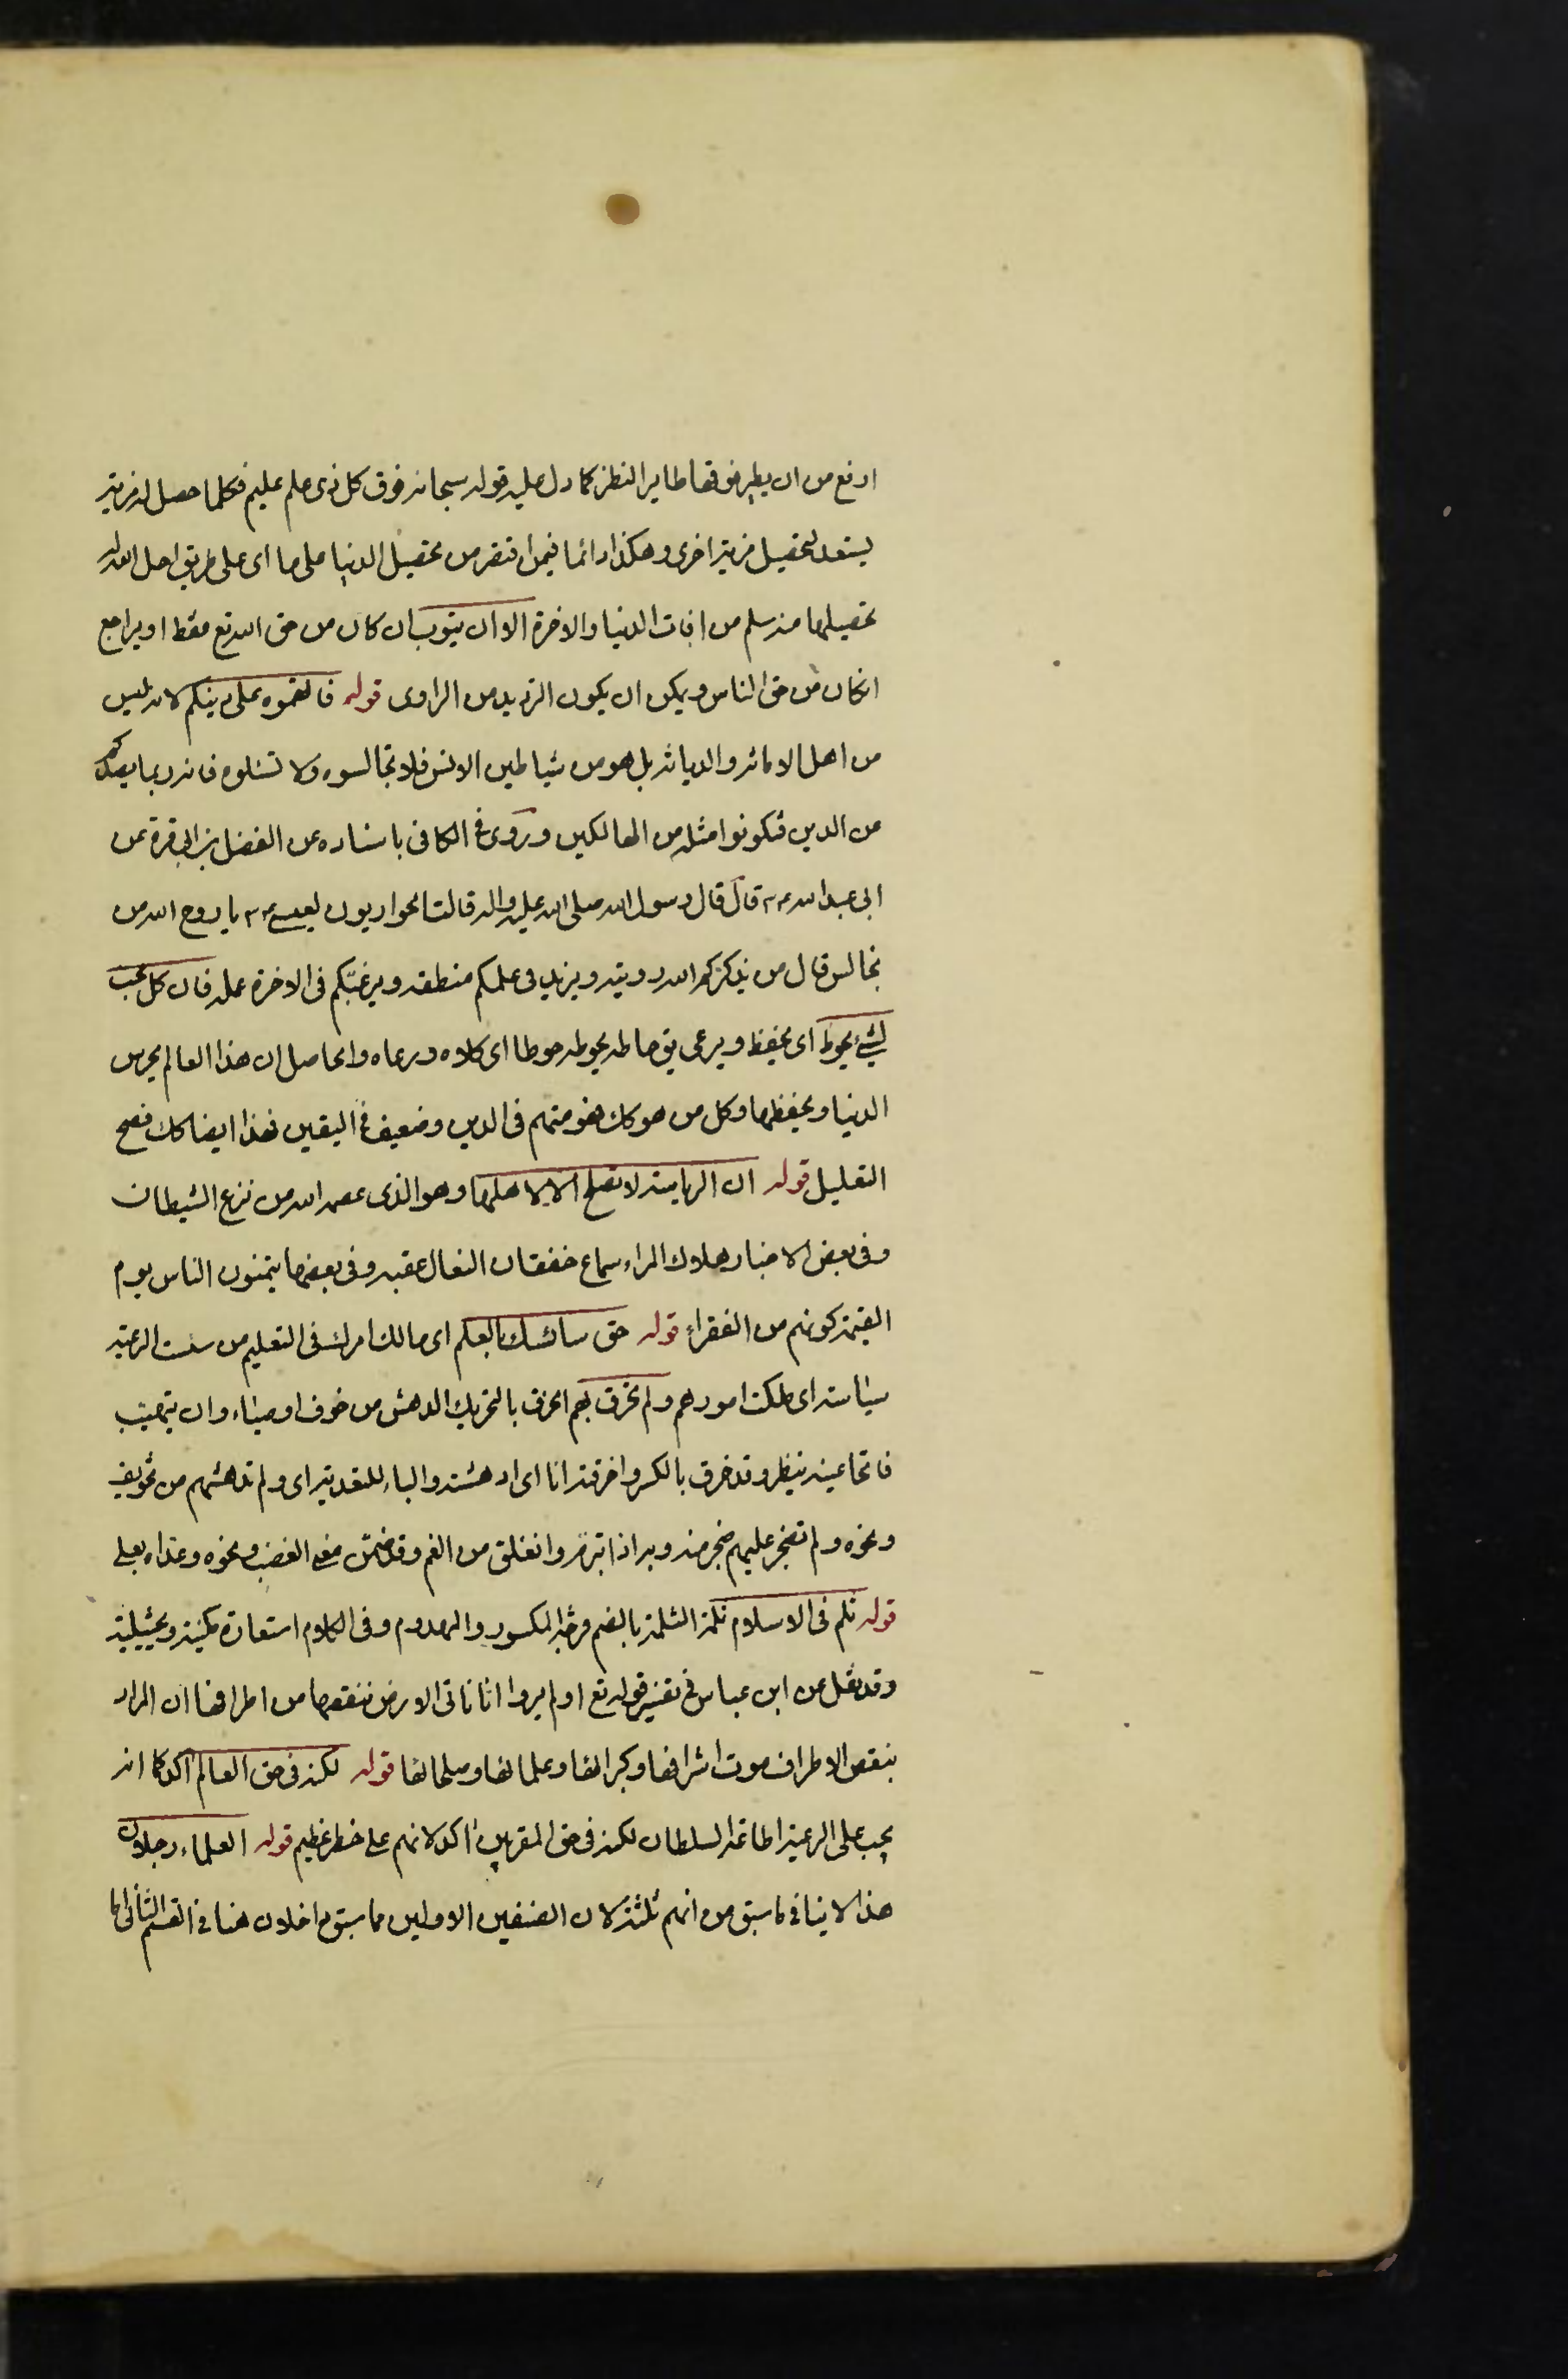 ارفع من ان يطير فوقها طاير النظر كما دل عليه قوله سبحانه فوق كل ذى علم عليم فكلما حصل له مزية
يستعد لتحصيل مزية اخرى وهكذا دائما فيمن اقتصر من تحصيل الدنيا على ما اى على طريق احل الله له
تحصيلها منه سلم من افات الدنيا والاخرة الا ان يتوب ان كان من حق الله تع فقط او يراجع
انكان من حق الناس ويمكن ان يكون الترديد من الراوى قوله فاتهموه على دينكم لانه ليس
من اهل الامانة والديانة بل هو من شياطين الانس فلا تجالسوه ولا تسئلوه فانه ربما يصدكم
عن الدين فتكونوا مثله من الهالكين وروى فى الكافى باسناده عن الفضل بن ابى قرة عن
ابى عبد الله ع قال قال رسول الله صلى الله عليه واله قالت الحواريون لعيسى ع يا روح الله من
نجالس قال من يذكركم الله رويته ويزيد فى علمكم منطقه ويرغبكم فى الاخرة عمله فان كل محب
لشئ يحوط اى يحفظ ويرعى يق حاطه يحوطه حوطا اى كلاه ورعاه والحاصل ان هذا العالم يحرس
الدنيا ويحفظها وكل من هو كك فهو متهم فى الدين وضعيف فى اليقين فهذا ايضا كك فصح
التعليل قوله ان الرياسة لا تصلح الا لاهلها وهو الذى عصمه الله من نزع الشيطان
وفى بعض الاخبار هلاك المراء سماع خفقان النعال عقبه وفى بعضها يتمنون الناس يوم
القيمة كونهم من الفقراء قوله حق سائسك بالعلم اى مالك امرك فى التعليم من سست الرعية
سياسة اى ملكت امورهم ولم تخرق بهم الخرق بالتحريك الدهش من خوف او حياء وان يبهت
فاتحا عينه ينظر وقد خرق بالكسر واخرقته انا اى ادهشته والباء للتعدية اى ولم تدهشهم من تخويف
ونحوه ولم تضجر عليهم ضجر منه وبه اذا تبرم وانغلق من الغم وقد ضمن معنى الغضب ونحوه وعداه بعلى
قوله ثلم فى الاسلام ثلمة الثلمة بالضم فرجة المكسور والمهدوم وفى الكلام استعارة مكنية وتخييلية
وقد نقل عن ابن عباس فى تفسير قوله تع اولم يروا انا ناتى الارض ننقصها من اطرافها ان المراد
بنقص الاطراف موت اشرافها وكبرائها وعلمائها وصلحائها قوله لكنه فى حق العالم اكد كما انه
يجب على الرعية اطاعة السلطان لكنه فى حق المقربين اكد لانهم على خطر عظيم قوله العلماء رجلان
هذا لا ينافى ما سبق من انهم ثلثة لان الصنفين الاولين مما سبق داخلان هنا فى القسم الثانى